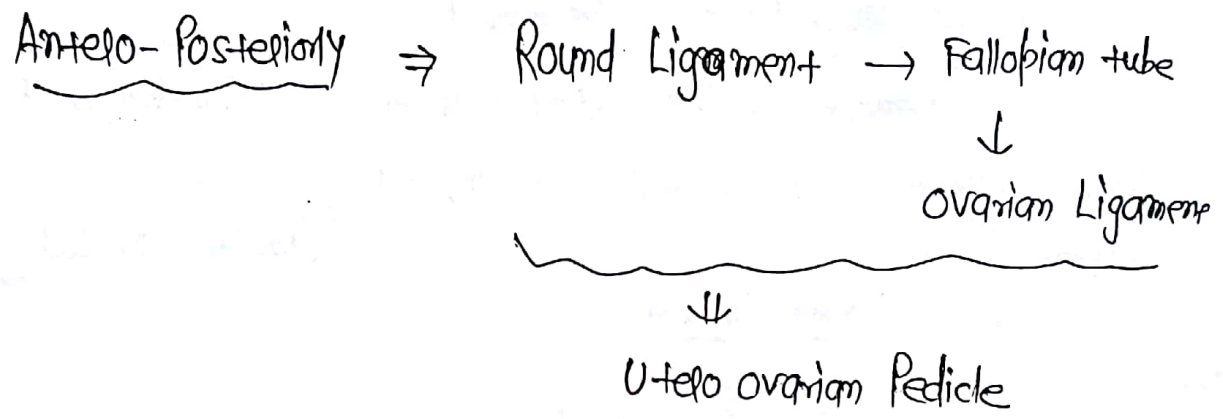 Antero-Posteriorly ⇒ Round Ligament → Fallopian tube
↓
Ovarian Ligament
⇓
Utero ovarian Pedicle